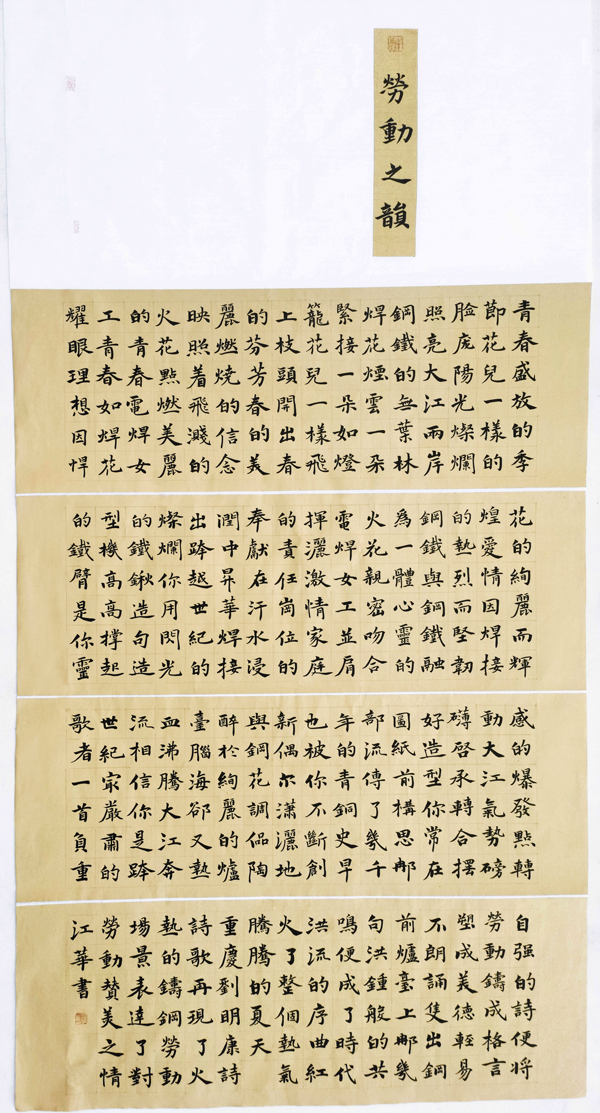 勞動之韻
青春盛放的季
節花兒一樣的
脸庞陽光燦爛
照亮大江兩岸
鋼鐵的無葉林
焊花煙雲一朵
緊接一朵如燈
籠花兒一樣飛
上枝頭開出春
的芬芳春的美
麗燃燒的信念
映照着飛濺的
火花點燃美麗
的青春電焊女
工青春如焊花
耀眼理想因悍
花的絢麗而輝
煌愛情因焊接
的熱烈而堅韌
鋼鐵與鋼鐵融
為一體心靈的
火花親密吻合
電焊女工並肩
揮灑激情家庭
的責任崗位的
奉獻在汗水浸
潤中昇華焊接
出跨越世紀的
燦爛你用閃光
的鐵鍬造句造
型機高高撑起
的鐵臂是你靈
感的爆發點轉
動大江氣勢磅
礴啓承轉合擺
好造型你常在
圖紙前構思那
部流傳了幾千
年的青銅史早
也被你不斷創
新偶尔潇灑地
與鋼花調侃陶
醉於絢麗的爐
臺腦海卻又熱
血沸騰大江奔
流相信你是跨
世紀最嚴肅的
歌者一首負重
自强的詩便将
勞動鑄成格言
塑成美德輕易
不朗誦隻出鋼
前爐臺上那幾
句洪鍾般的共
鳴便成了時代
洪流的序曲紅
火了整個熱氣
騰騰的夏天
重慶劉明康詩
詩歌再現了火
熱的鑄鋼勞動
場景表達了對
勞動贊美之情
江華書